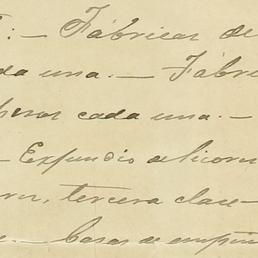 : — Fábricas de
da una. — Fábri
pesos cada una. —
— Expendio de licores
tercera clase —
. — Casas de empeñ